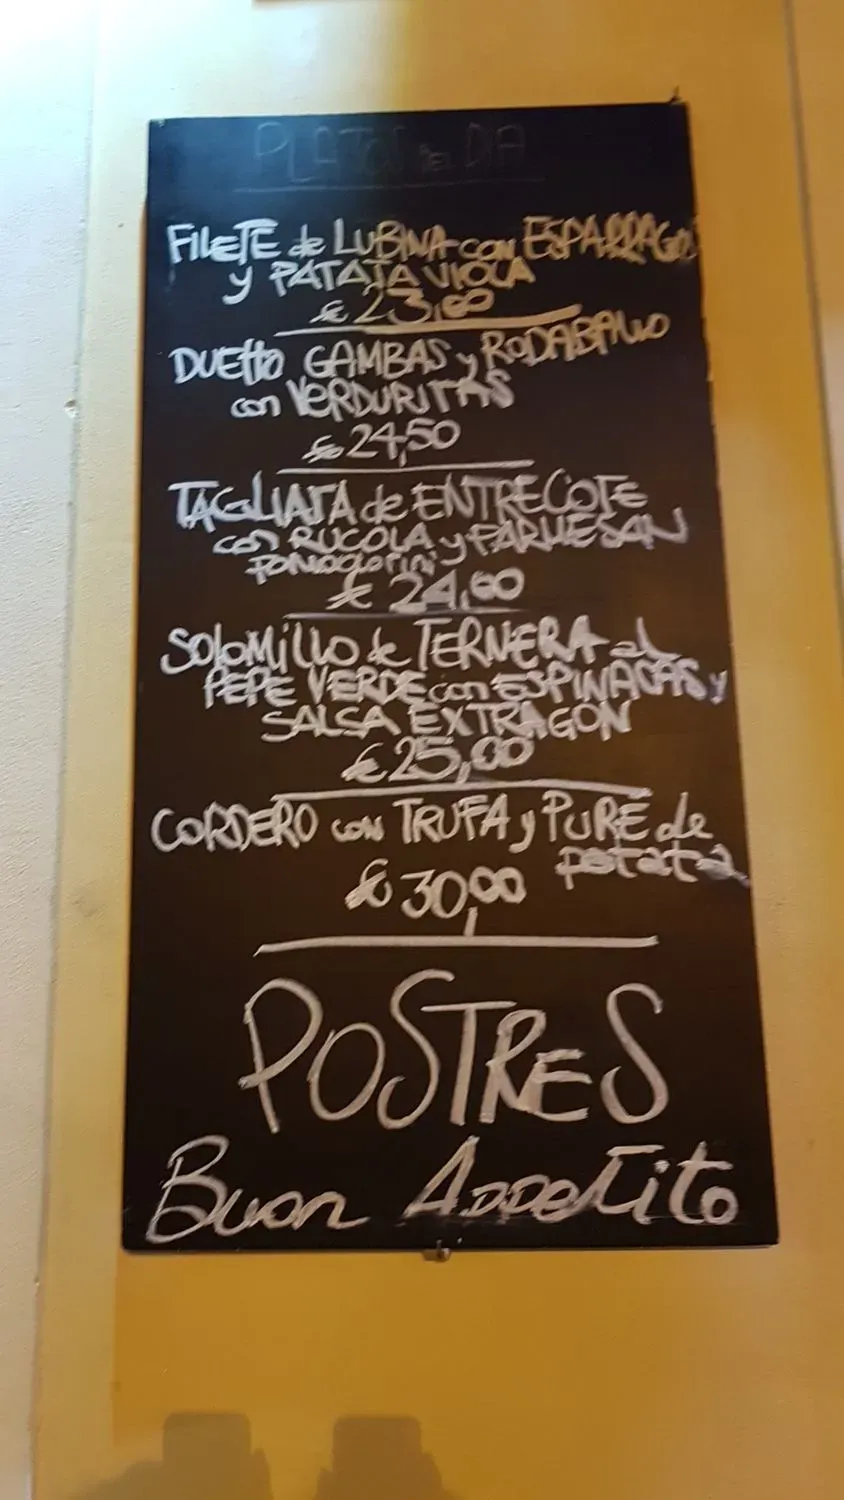 PLATOS del DIA
FILETE de LUBINA con ESPARRAGOS
y PATATA VIOLA
€ 23,00
DUETTO GAMBAS y RODABALLO
con VERDURITAS
€ 24,50
TAGLIATA de ENTRECOTE
con RUCOLA y PARMESAN
pomodorini
€ 24,00
SOLOMILLO de TERNERA al
PEPE VERDE con ESPINACAS y
SALSA EXTRAGON
€ 25,00
CORDERO con TRUFA y PURE de
patata
€ 30,00
POSTRES
Buon Appetito